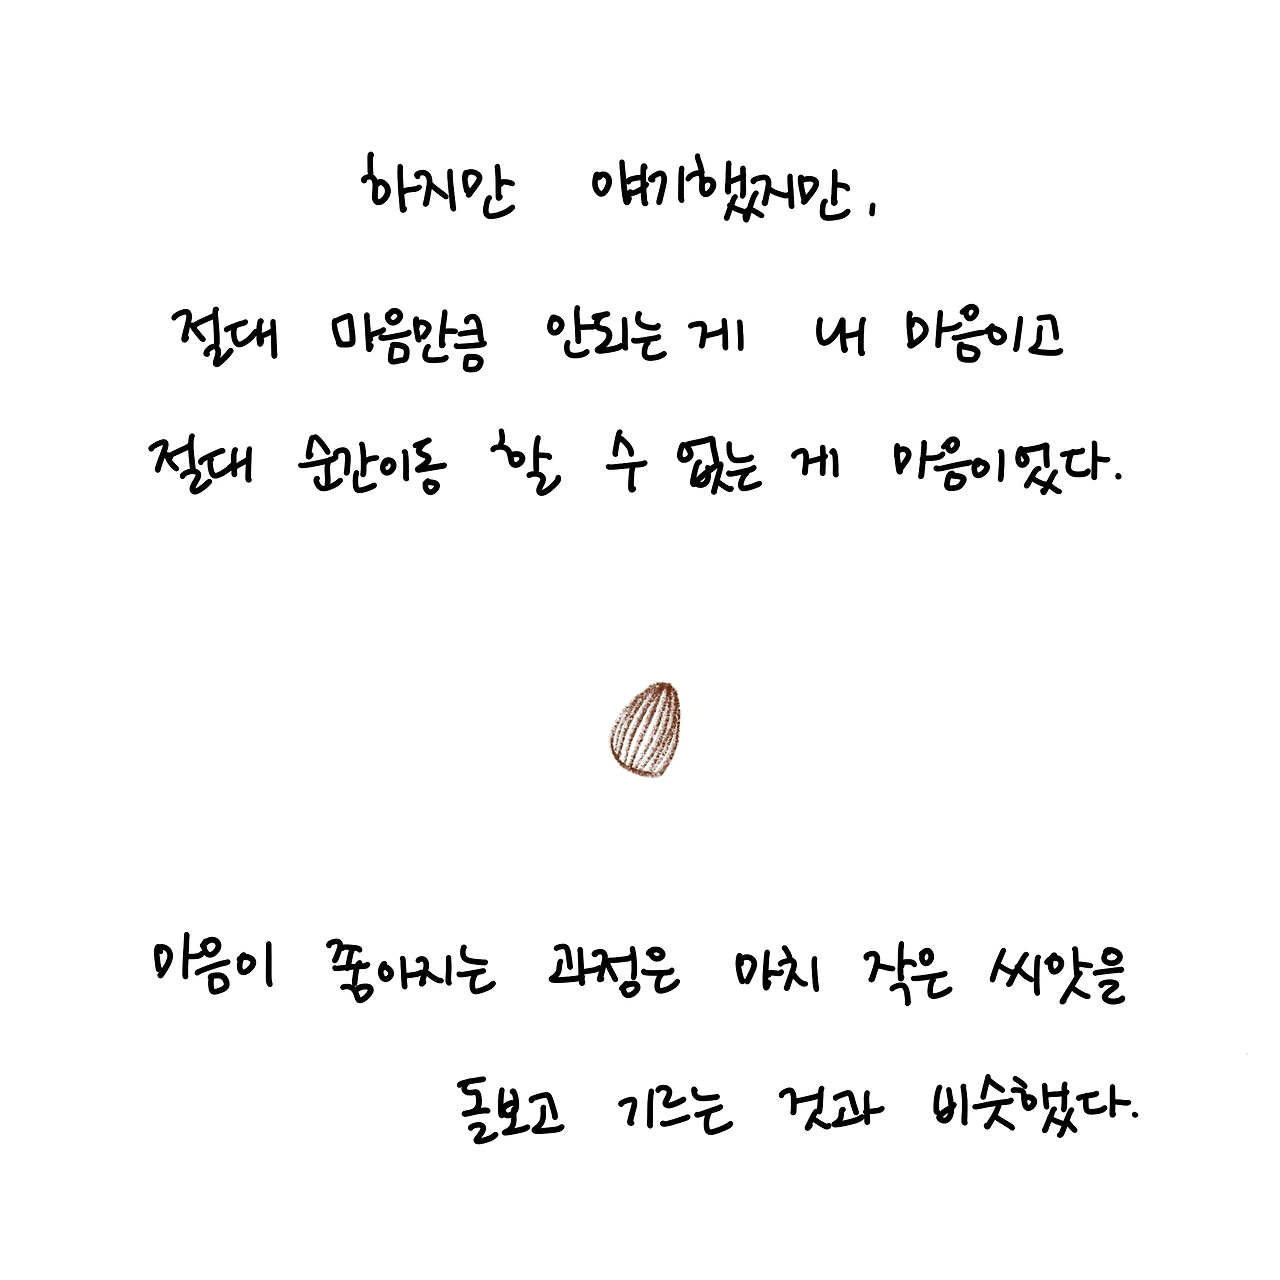 하지만 얘기했지만,
절대 마음만큼 안되는 게 내 마음이고
절대 순간이동 할 수 없는 게 마음이었다.
마음이 좋아지는 과정은 마치 작은 씨앗을
돌보고 기르는 것과 비슷했다.